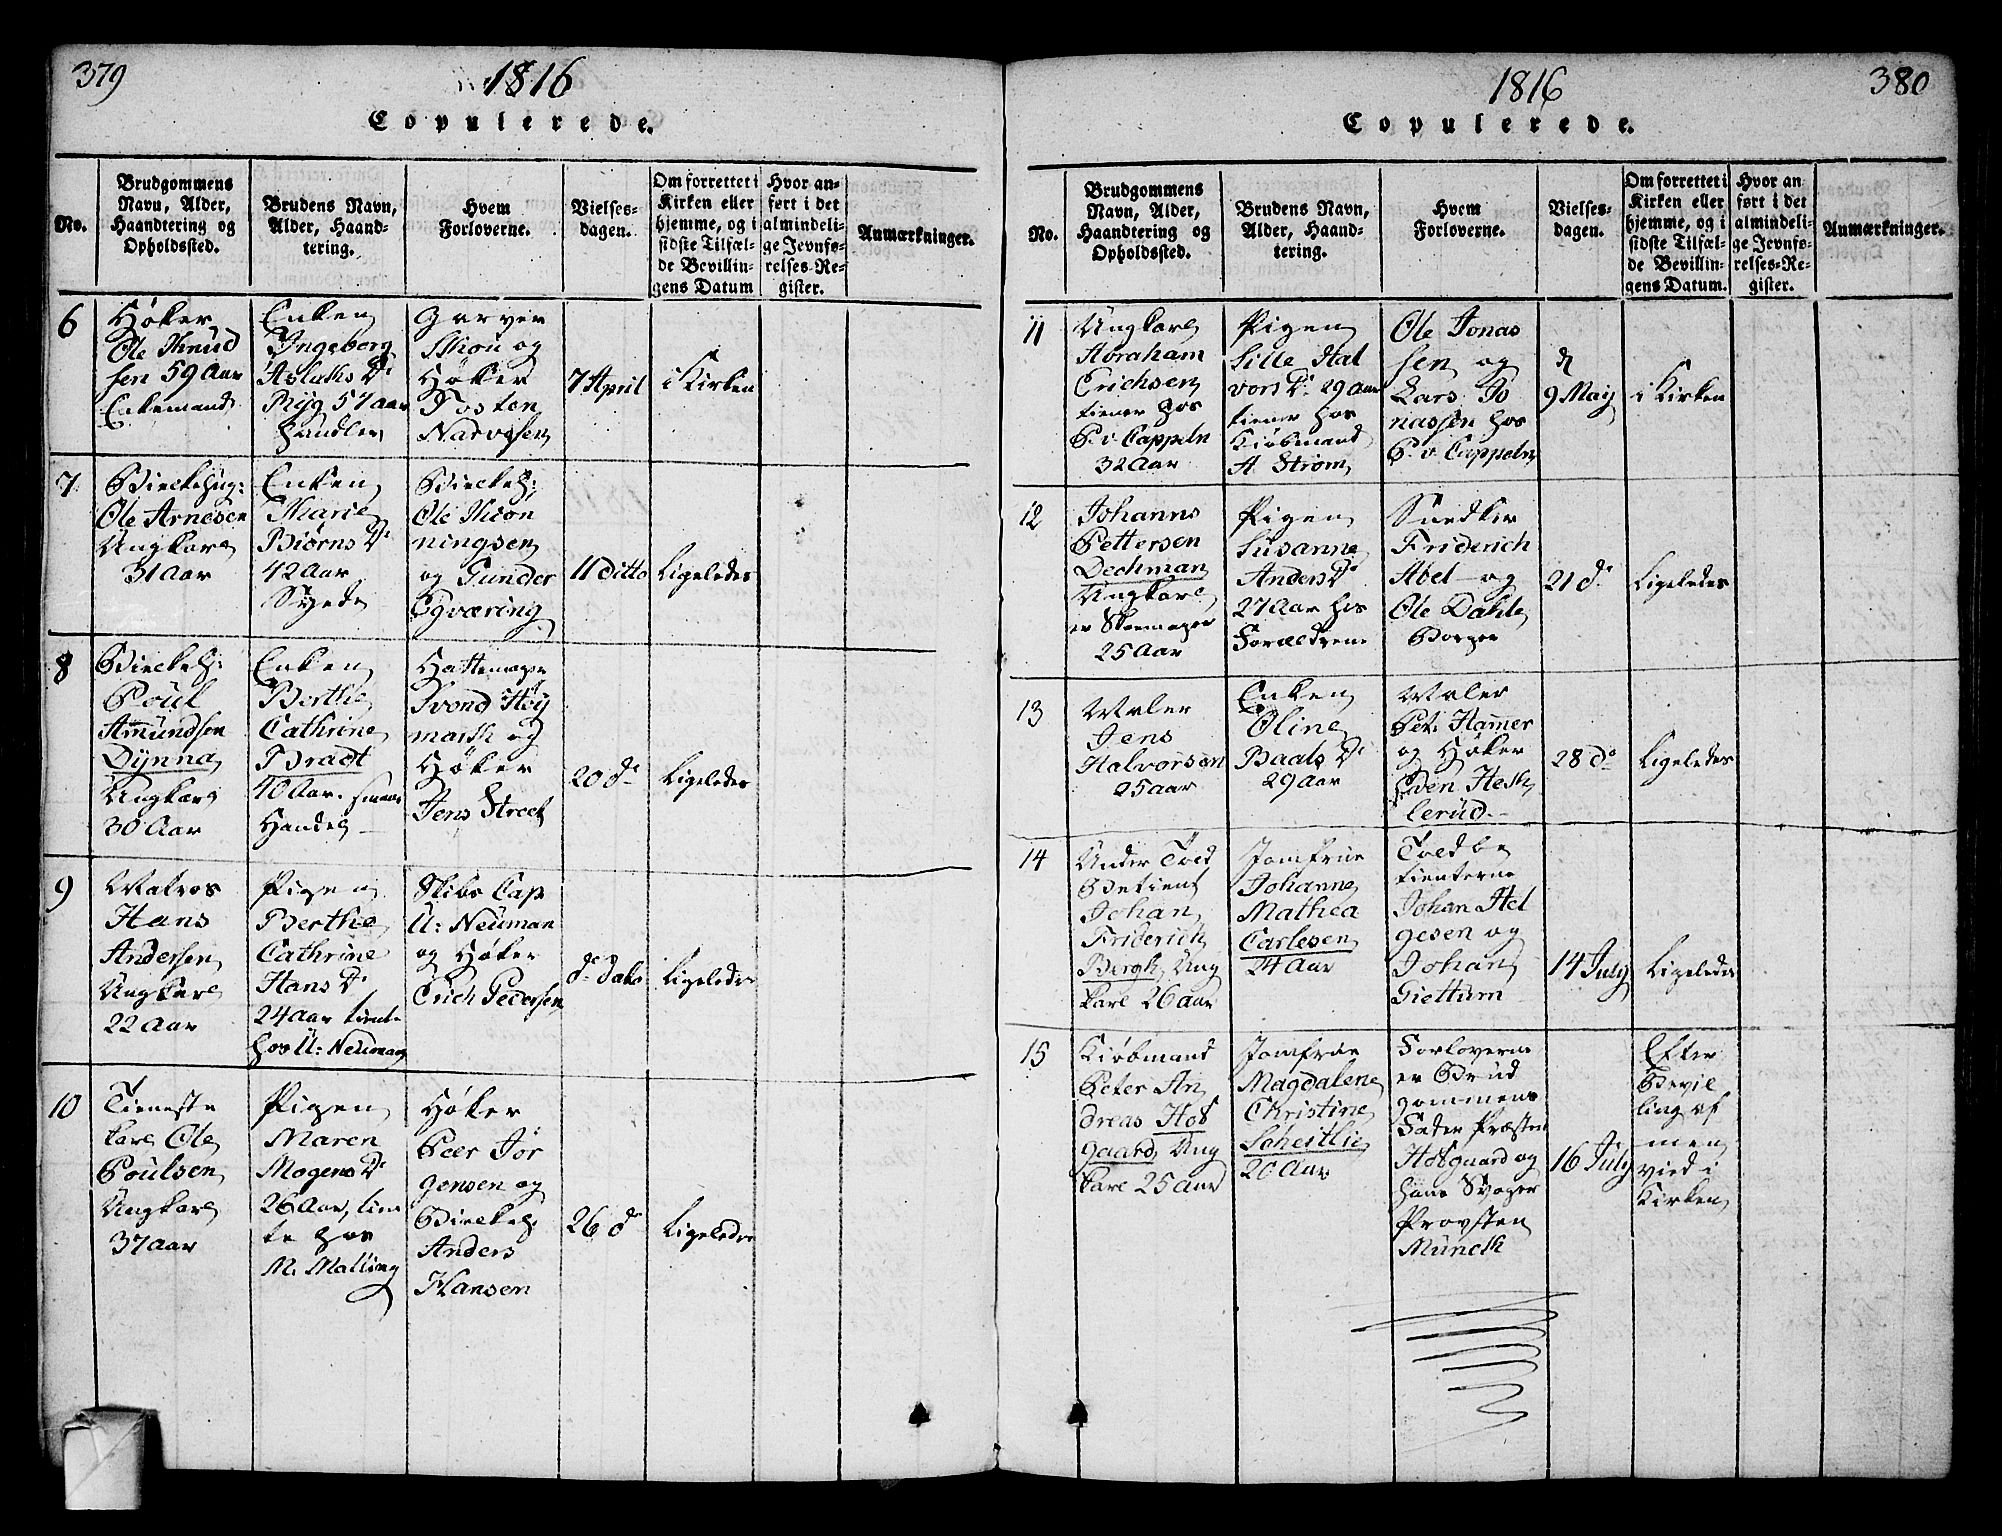 379
1816
Copulerede.
No.
Brudgommens
Navn, Alder,
Haandtering og
Opholdssted.
Brudens Navn,
Alder, Haand-
tering.
Hvem
Forloverne.
Vielses-
dagen.
Om forrettet i
Kirken eller
hjemme, og i
sidste Tilfæl-
de Bevillin-
gens Datum
Hvor an-
ført i det
almindeli-
ge Jevnfø-
relses-Re-
gister.
Anmærkninger.
6
Høker
Ole Knud
sen 59 Aar
Enkemand
Enken
Ingeborg
Aslaks Dr
Ryg 57 aar
handler
Garver
Skiou og
Høker
Tosten
Narvesen
7 April
i Kirken
7
Ole Arnesen
Ungkarl
31 Aar
Enken
Marie
Biørns Dr
42 Aar
Syede
Ole Kion
ningsen
og Gunder
Egværing
11 ditto
Ligeledes
8
Poul
Amundsen
Dynna
Ungkarl
30 Aar
Enken
Berthe
Cathrine
Bradt
40 Aar. smaae
Handel
Hattemager
Svend Høy
mark og
Høker
Jens Street
20 do
Ligeledes
9
Matros
Hans
Andersen
Ungkarl
22 Aar
Pigen
Berthe
Cathrine
Hans Dr
24 Aar tient
hos U: Neuman
Skibs Cap
U: Neuman
og Høker
Erich Pedersen
do Dato
Ligeledes
10
Tieneste
karl Ole
Poulsen
Ungkarl
37 Aar
Pigen
Maren
Mogens Dr
26 Aar, tien
te hos
M. Malling
Høker
Peer Jør
gensen og
Anders
Hansen
26 do
Ligeledes
1816
380
Copulerede.
No.
Brudgommens
Navn, Alder,
Haandtering og
Opholdssted.
Brudens Navn,
Alder, Haand-
tering.
Hvem
Forloverne.
Vielses-
dagen.
Om forrettet i
Kirken eller
hjemme, og i
sidste Tilfæl-
de Bevillin-
gens Datum.
Hvor an-
ført i det
almindeli-
ge Jevnfø-
relses-Re-
gister.
Anmærkninger.
11
Ungkarl
Abraham
Erichsen
tiener hos
P. v. Cappeln
32 Aar
Pigen
Sille Hal
vors Dr 29 Aar
tiener hos
Kiøbmand
A. Strøm
Ole Jonas
sen og
Lars Jo
nassen hos
P. v. Cappeln
d
9 May
i Kirken
12
Johanns
Pettersen
Dechman
Ungkarl
er Skoemager
25 Aar
Pigen
Susanne
Anders Dr
27 Aar hos
Forældrene
Snedker
Friderich
Abel og
Ole Dahle
Borger
21 do
Ligeledes
13
Maler
Jens
Halvorsen
25 aar
Enken
Oline
Baals Dr
29 aar
Maler
Pet: Hamer
og Høker
Eden Hesh
lerud
28 do
Ligeledes
14
Under Told
Betient
Johan
Friderich
Bergh, Ung
karl 26 aar
Jomfrue
Johanne
Mathea
Carlesen
24 Aar
Toldbe
tienterne
Johan Hel
gesen og
Johan
Giettum
14 July
Ligeledes
15
Kiøbmand
Peter An
dreas Hof
gaard, Ung
karl 25 aar
Jomfrue
Magdalene
Christine
Scheitlie
20 Aar
Forloverne
er Brud
gommens
Fader Præsten
Hofgaard og
hans Svoger
Provsten
Münch
16 July
Efter
Bevil
ling af
men
vied i
Kirken